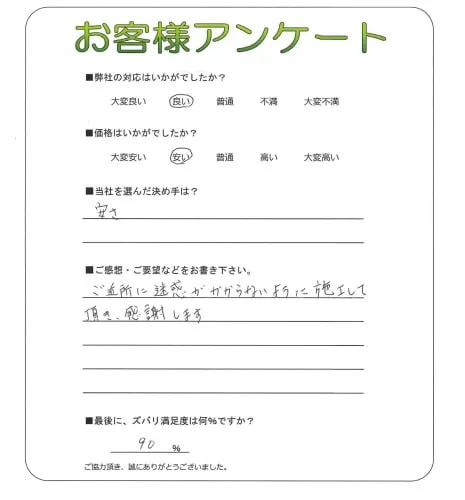 お客様アンケート
■弊社の対応はいかがでしたか？
大変良い 良い 普通 不満 大変不満
■価格はいかがでしたか？
大変安い 安い 普通 高い 大変高い
■当社を選んだ決め手は？
安さ
■ご感想・ご要望などをお書き下さい。
ご近所に迷惑がかからないように施工して
頂き、感謝します
■最後に、ズバリ満足度は何％ですか？
90 ％
ご協力頂き、誠にありがとうございました。